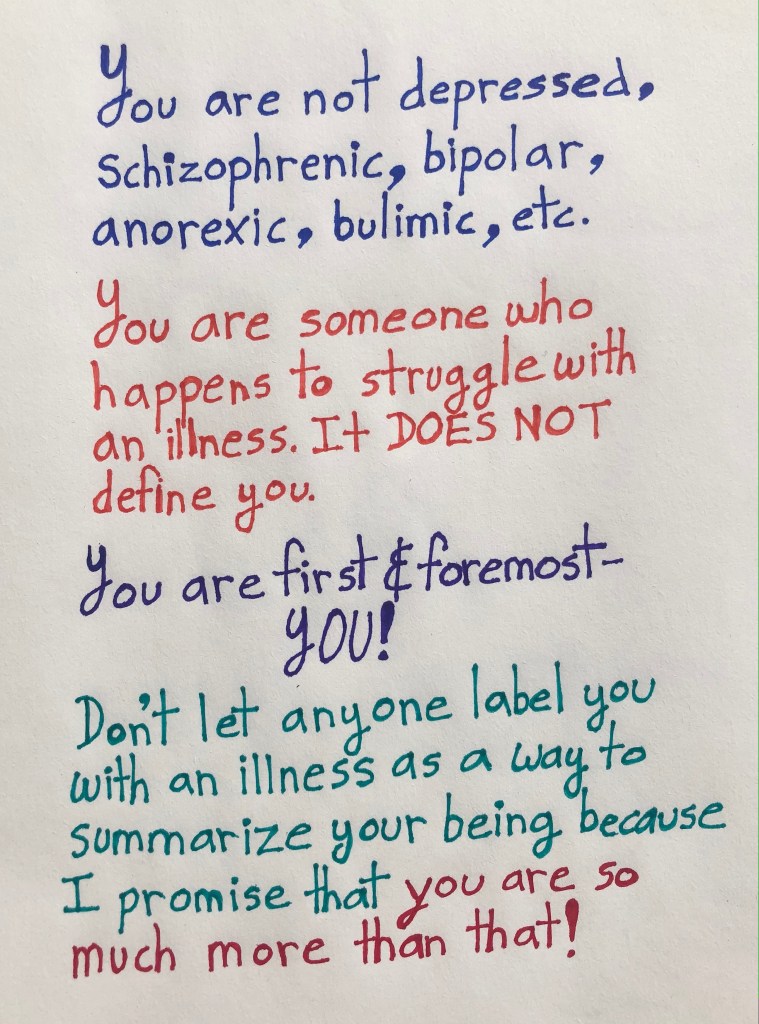 You are not depressed,
Schizophrenic, bipolar,
anorexic, bulimic, etc.
You are someone who
happens to struggle with
an illness. It DOES NOT
define you.
You are first & foremost-
YOU!
Don't let anyone label you
with an illness as a way to
summarize your being because
I promise that you are so
much more than that!